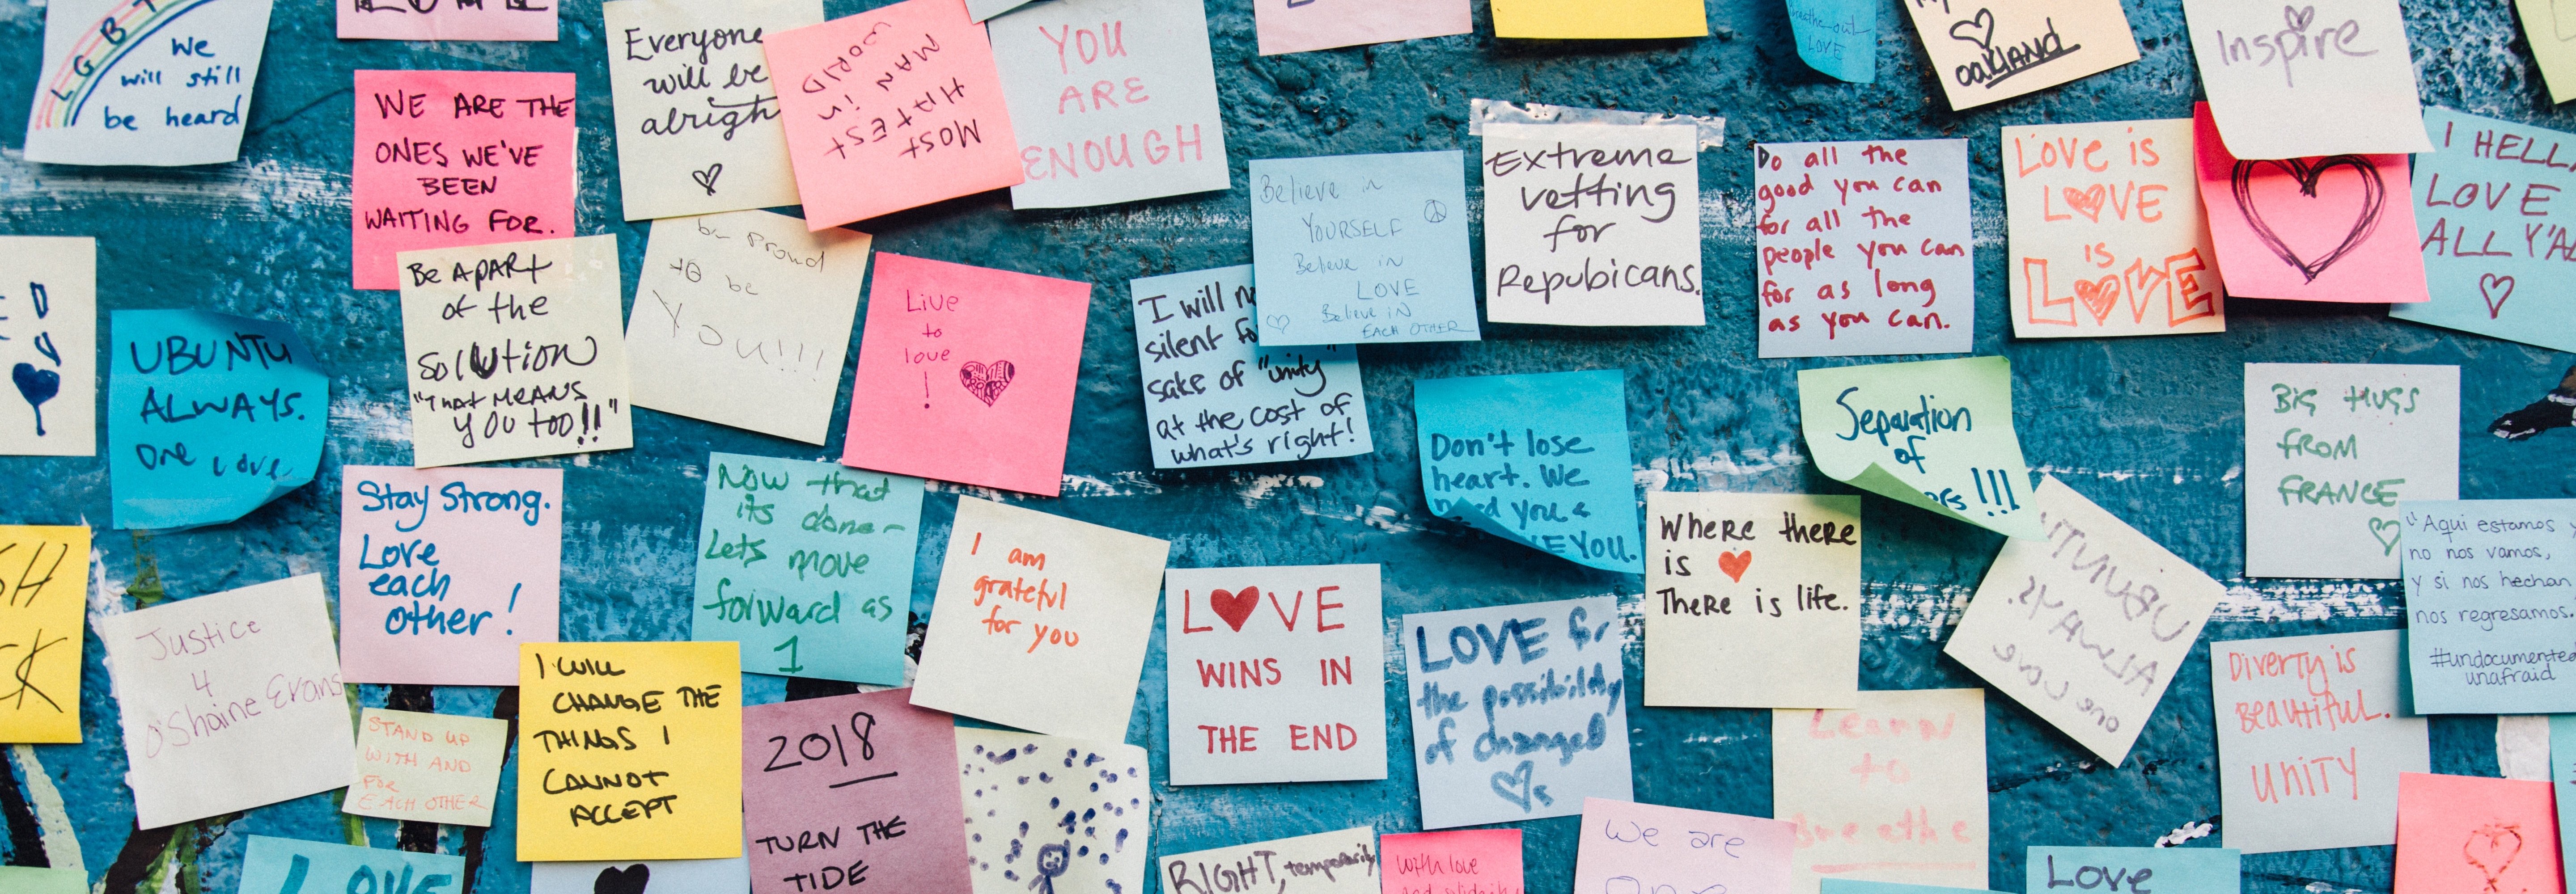 LGBT
We
will still
be heard
WE ARE THE
ONES WE'VE
BEEN
WAITING FOR.
Everyone
will be
alright
MOST
HATEST
MAN in
WORLD
YOU
ARE
ENOUGH
breathe out
LOVE
OAKLAND
Inspire
Believe in
YOURSELF
Believe in
LOVE
Believe IN
EACH OTHER
Extreme
vetting
for
Repubicans.
Do all the
good you can
for all the
people you can
for as long
as you can.
LOVE is
LOVE
is
LOVE
I HELL
LOVE
ALL Y'AL
UBUNTU
ALWAYS.
One Love
Be APART
of the
SolUtion
"That MEANS
YOU too!!"
be proud
to be
YOU!!!
Live
to
love
!
I will no
silent fo
sake of "unity"
at the cost of
what's right!
Don't lose
heart. We
need you &
VE YOU.
Separation
of
ers!!!
BIG HUGS
FROM
FRANCE
"Aqui estamos y
no nos vamos,
y si nos hechan
nos regresamos.
#undocumented
unafraid
SH
CK
Stay Strong.
Love
each
other!
Now that
its done-
Lets move
forward as
1
I am
grateful
for you
LOVE
WINS IN
THE END
LOVE for
the possibility
of changed
Where there
is
There is life.
UBUNTU
ALWAYS.
one love
Justice
4
O'Shaine Evans
STAND UP
WITH AND
FOR
EACH OTHER
I WILL
CHANGE THE
THINGS I
CANNOT
ACCEPT
2018
TURN THE
TIDE
Learn
to
breathe
Diverty is
Beautiful.
UNITY
LOVE
RIGHT, temporarily
With love
and solidarity
We are
One
Love